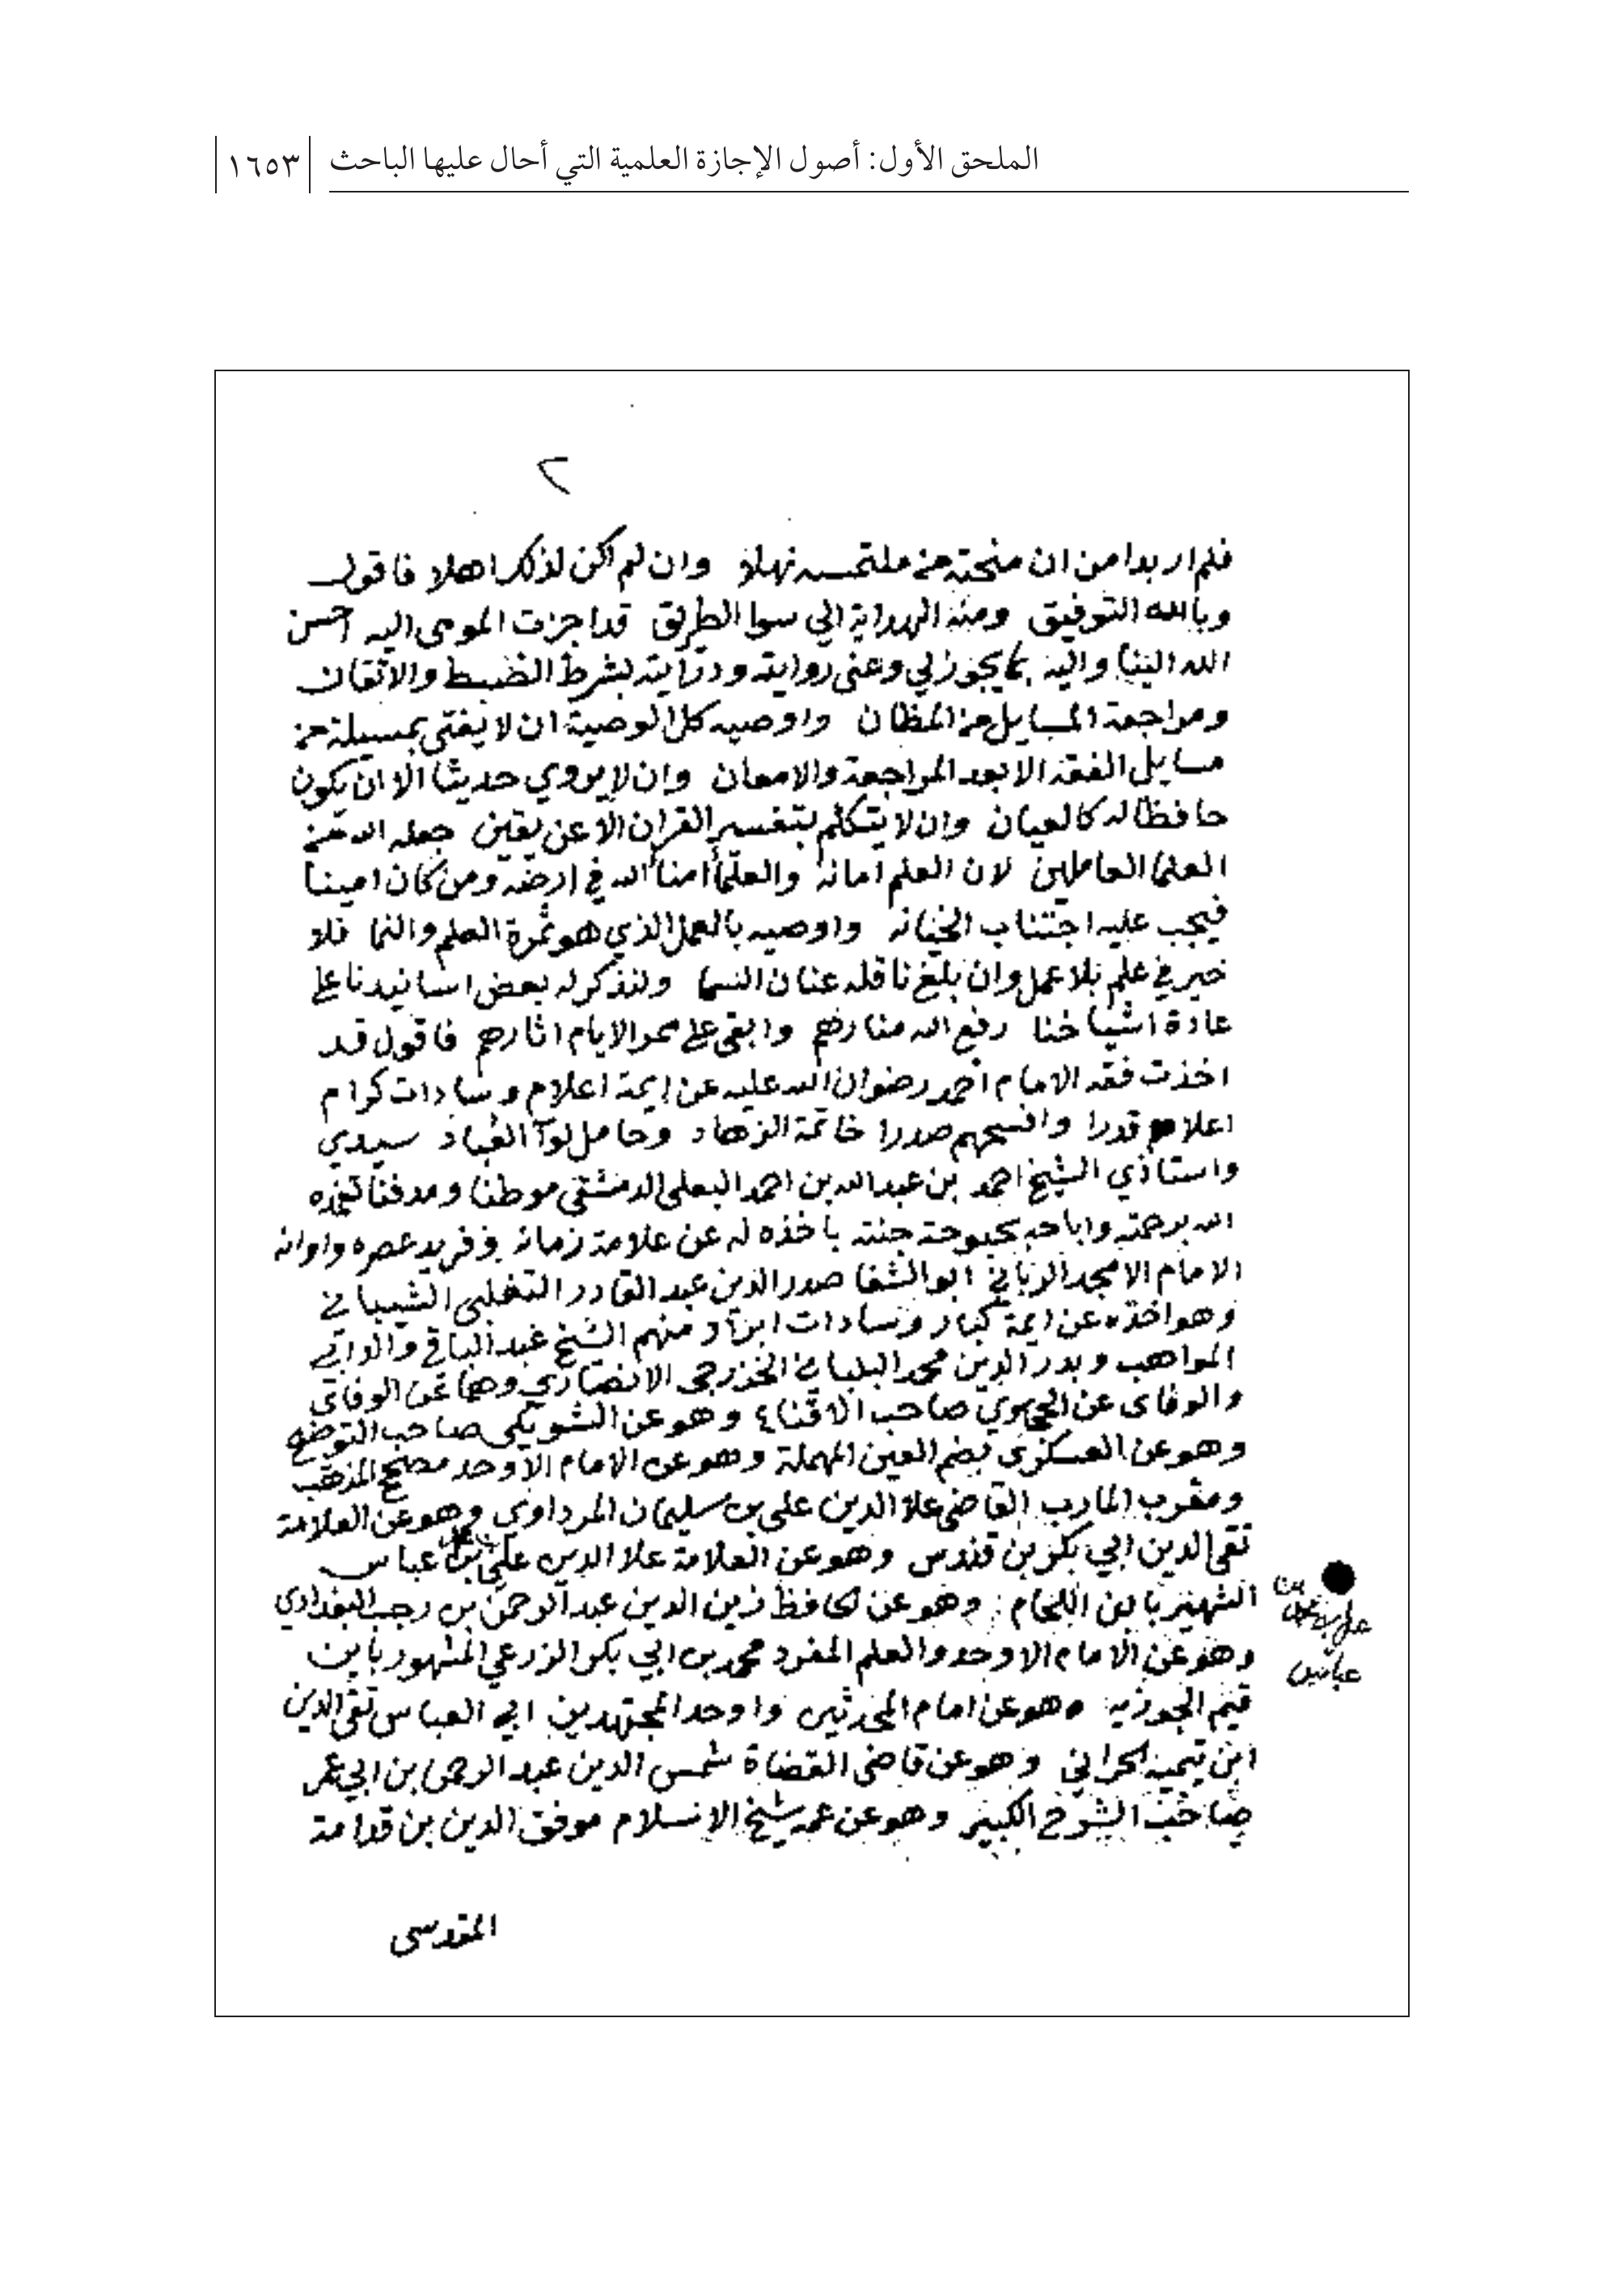 الملحق الأول: أصول الإجازة العلمية التي أحال عليها الباحث
١٦٥٣
٢
فلم ار بدا من ان منحته من ملتمسه نهلا وان لم اكن لذلك اهلا فاقول
وبالله التوفيق ومنه الهداية الي سوا الطريق قد اجزت المومى اليه احسن
الله الينا واليه بما يجوز لي وعني روايته ودرايته بشرط الضبط والاتقان
ومراجعة المسايل من المظان واوصيه كل الوصية ان لا يفتى بمسيلة من
مسايل الفقه الا بعد المراجعة والامعان وان لا يروي حديثا الا ان يكون
حافظا له كالعيان وان لا يتكلم بتفسير القران الا عن يقين جعله الله من
العلما العاملين لان العلم امانه والعلما امنا الله في ارضه ومن كان امينا
فيجب عليه اجتناب الخيانه واوصيه بالعمل الذي هو ثمرة العلم والنما فلا
خير في علم بلا عمل وان بلغ ناقله عنان السما ولنذكر له بعض اسانيدنا على
عادة اشياخنا رفع الله منارهم وابقى على ممر الايام اثارهم فاقول قد
اخذت فقه الامام احمد رضوان الله عليه عن ايمة اعلام وسادات كرام
اعلاهم قدرا وافسحهم صدرا خاتمة الزهاد وحامل لوآ العباد سيدي
واستاذي الشيخ احمد بن عبد الله بن احمد البعلي الدمشقي موطنا ومدفنا تغمده
الله برحمته واباحه بحبوحة جنته باخذه له عن علامة زمانه وفريد عصره واوانه
الامام الامجد الرباني ابو الشفا صدر الدين عبد القادر التغلبي الشيباني
وهو اخذه عن ايمة كبار وسادات ابرار منهم الشيخ عبد الباقي والد ابي
المواهب وبدر الدين محمد البلباني الخزرجي الانصاري وهما عن الوفاى
والوفاى عن الحجاوي صاحب الاقناع وهو عن الشويكي صاحب التوضيح
وهو عن العسكري بضم العين المهملة وهو عن الامام الاوحد مصحح المذهب
ومقرب المارب القاضي علا الدين علي بن سليمان المرداوي وهو عن العلامة
تقي الدين ابي بكر بن قندس وهو عن العلامة علا الدين علي بن عباس
الشهير بابن اللحام وهو عن الحافظ زين الدين عبد الرحمن بن رجب البغدادي
بن
علي بن
عباس
وهو عن الامام الاوحد والعلم المفرد محمد بن ابي بكر الزرعي المشهور بابن
قيم الجوزيه وهو عن امام المحدثين واوحد المجتهدين ابي العباس تقي الدين
ابن تيميه الحراني وهو عن قاضي القضاة شمس الدين عبد الرحمن بن ابي عمر
صاحب الشرح الكبير وهو عن عمه شيخ الاسلام موفق الدين بن قدامة
المقدسي